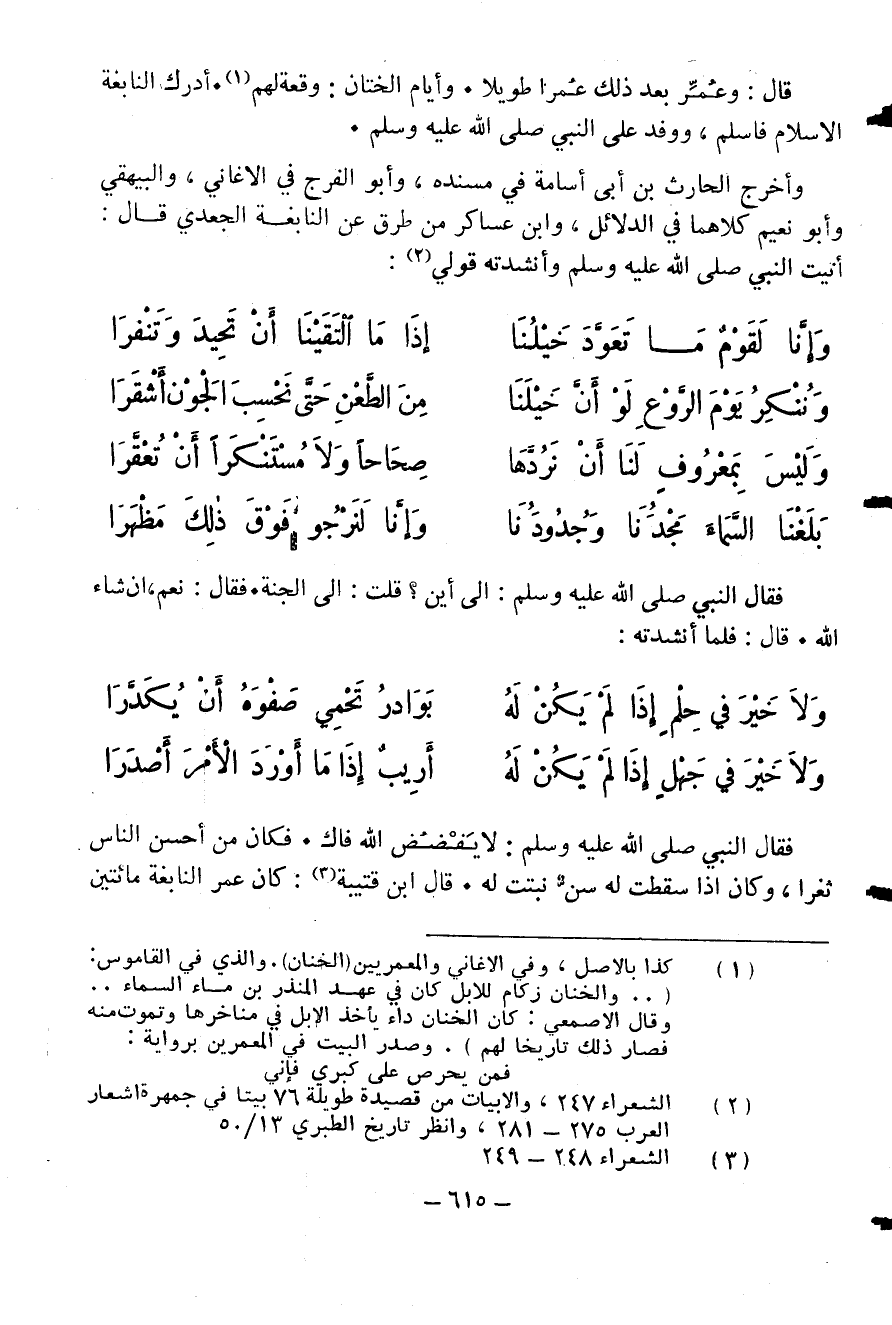 قال : وعُمِّر بعد ذلك عُمرا طويلا • وأيام الختان : وقعة لهم(١)•أدرك النابغة
الاسلام فاسلم ، ووفد على النبي صلى الله عليه وسلم •
وأخرج الحارث بن أبى أسامة في مسنده ، وأبو الفرج في الاغاني ، والبيهقي
وأبو نعيم كلاهما في الدلائل ، وابن عساكر من طرق عن النابغة الجعدي قال :
أتيت النبي صلى الله عليه وسلم وأنشدته قولي(٢) :
وَإِنَّا لَقَوْمٌ مَا تَعَوَّدَ خَيْلُنَا إِذَا مَا الْتَقَيْنَا أَنْ تَحِيدَ وَتَنْفِرَا
وَنُنْكِرُ يَوْمَ الرَّوْعِ لَوْ أَنَّ خَيْلَنَا مِنَ الطَّعْنِ حَتَّى نَحْسِبَ الْجَوْنَ أَشْقَرَا
وَلَيْسَ بِمَعْرُوفٍ لَنَا أَنْ نَرُدَّهَا صِحَاحاً وَلاَ مُسْتَنْكَراً أَنْ تُعْقَّرَا
بَلَغْنَا السَّمَاءَ مَجْدُنَا وَجُدُودُنَا وَإِنَّا لَنَرْجُو فَوْقَ ذٰلِكَ مَظْهَرَا
فقال النبي صلى الله عليه وسلم : الى أين ؟ قلت : الى الجنة•فقال : نعم،ان شاء
الله • قال : فلما أنشدته :
وَلاَ خَيْرَ فِي حِلْمٍ إِذَا لَمْ يَكُنْ لَهُ بَوَادِرُ تَحْمِي صَفْوَهُ أَنْ يُكَدَّرَا
وَلاَ خَيْرَ فِي جَهْلٍ إِذَا لَمْ يَكُنْ لَهُ أَرِيبٌ إِذَا مَا أَوْرَدَ الْأَمْرَ أَصْدَرَا
فقال النبي صلى الله عليه وسلم : لا يَفْضُض الله فاك • فكان من أحسن الناس
ثغرا ، وكان اذا سقطت له سنٌ نبتت له • قال ابن قتيبة(٣) : كان عمر النابغة مائتين
(١) كذا بالاصل ، وفي الاغاني والمعمريين (الخنان). والذي في القاموس:
( .. والخنان زكام للابل كان في عهد المنذر بن ماء السماء ..
وقال الاصمعي : كان الخنان داء يأخذ الإبل في مناخرها وتموت منه
فصار ذلك تاريخا لهم ) . وصدر البيت في المعمرين برواية :
فمن يحرص على كبري فإني
(٢) الشعراء ٢٤٧ ، والابيات من قصيدة طويلة ٧٦ بيتا في جمهرة اشعار
العرب ٢٧٥ – ٢٨١ ، وانظر تاريخ الطبري ٥٠/١٣
(٣) الشعراء ٢٤٨ – ٢٤٩
– ٦١٥ –